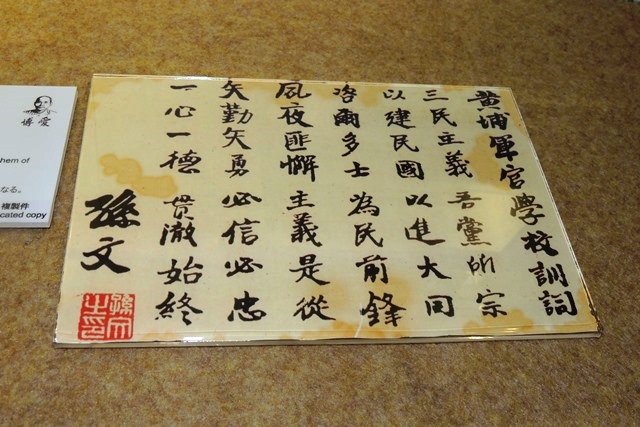 黄埔軍官學校訓詞
三民主義 吾黨所宗
以建民國 以進大同
咨爾多士 為民前鋒
夙夜匪懈 主義是從
矢勤矢勇 必信必忠
一心一德 貫澈始終
孫文
孫文之印
博愛
hem of
なる。
複製件
cated copy